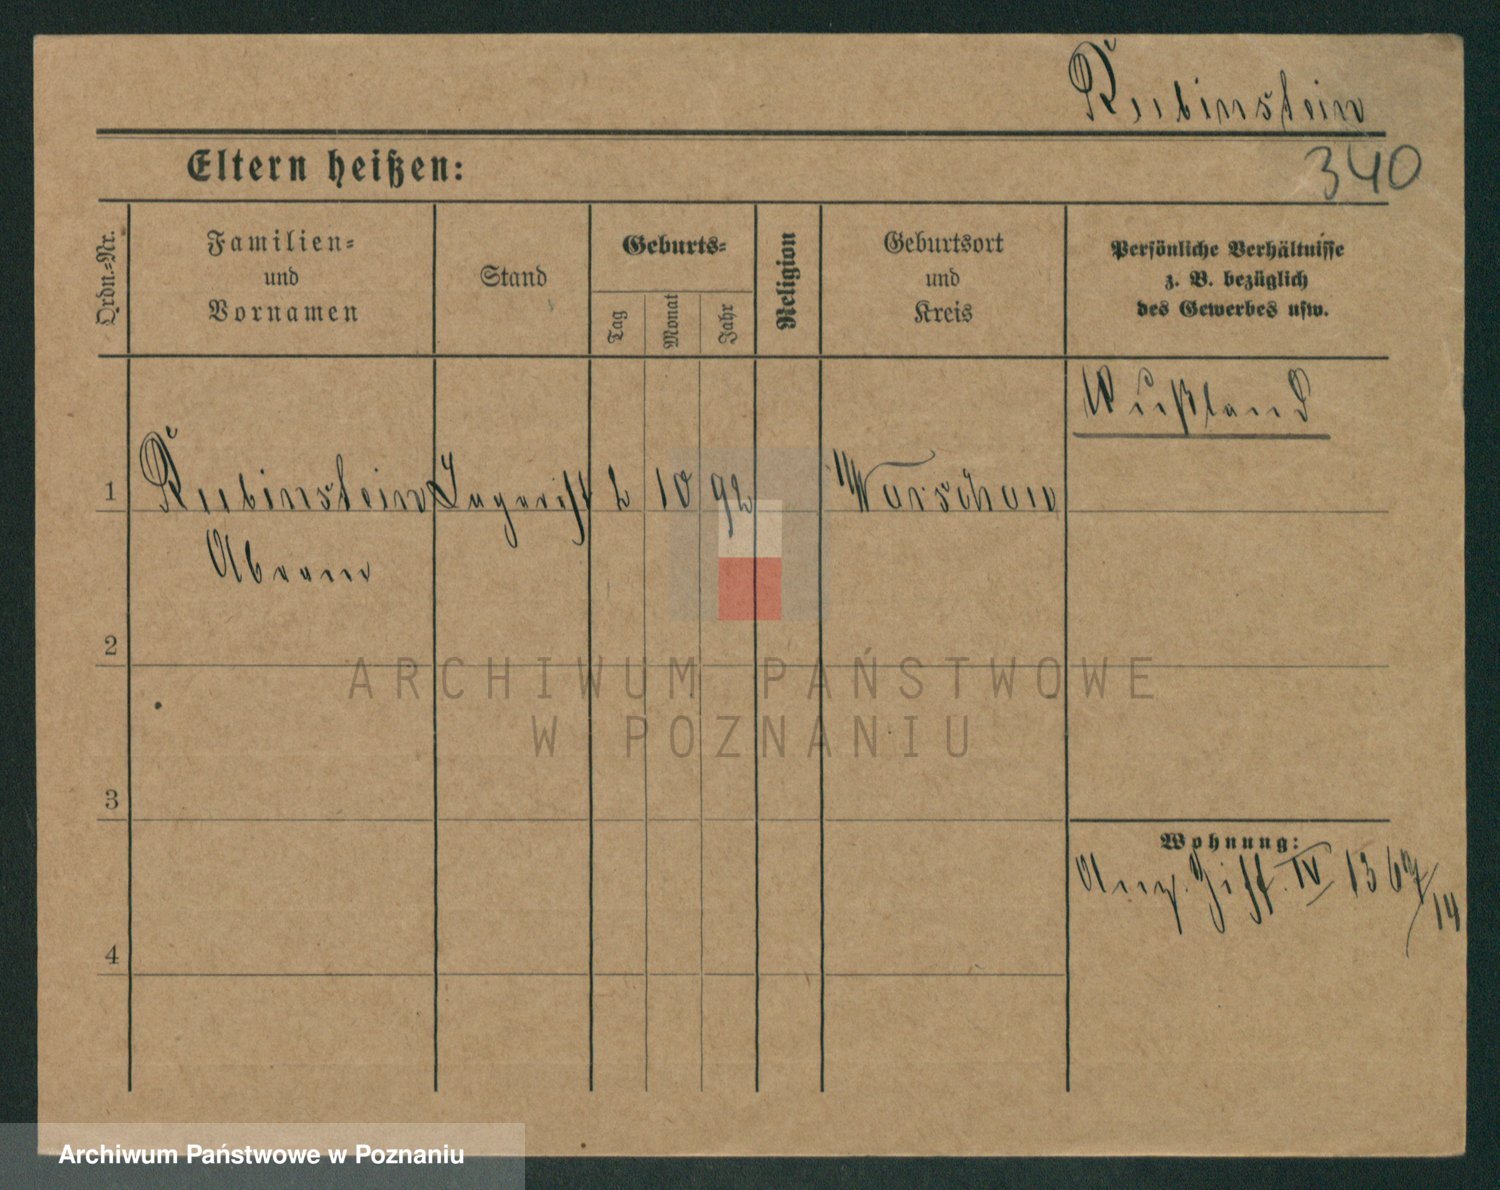 Rubinstein
340
Eltern heißen:
Ordn.=Nr.
Familien=
und
Vornamen
Stand
Geburts=
Tag
Monat
Jahr
Religion
Geburtsort
und
Kreis
Persönliche Verhältnisse
z. B. bezüglich
des Gewerbes usw.
Rußland
1 Rubinstein 2 10 92 Warschau
Abram
2
ARCHIWUM PAŃSTWOWE
W POZNANIU
3
Wohnung:
Ziff. IV 1367/14
4
Archiwum Państwowe w Poznaniu